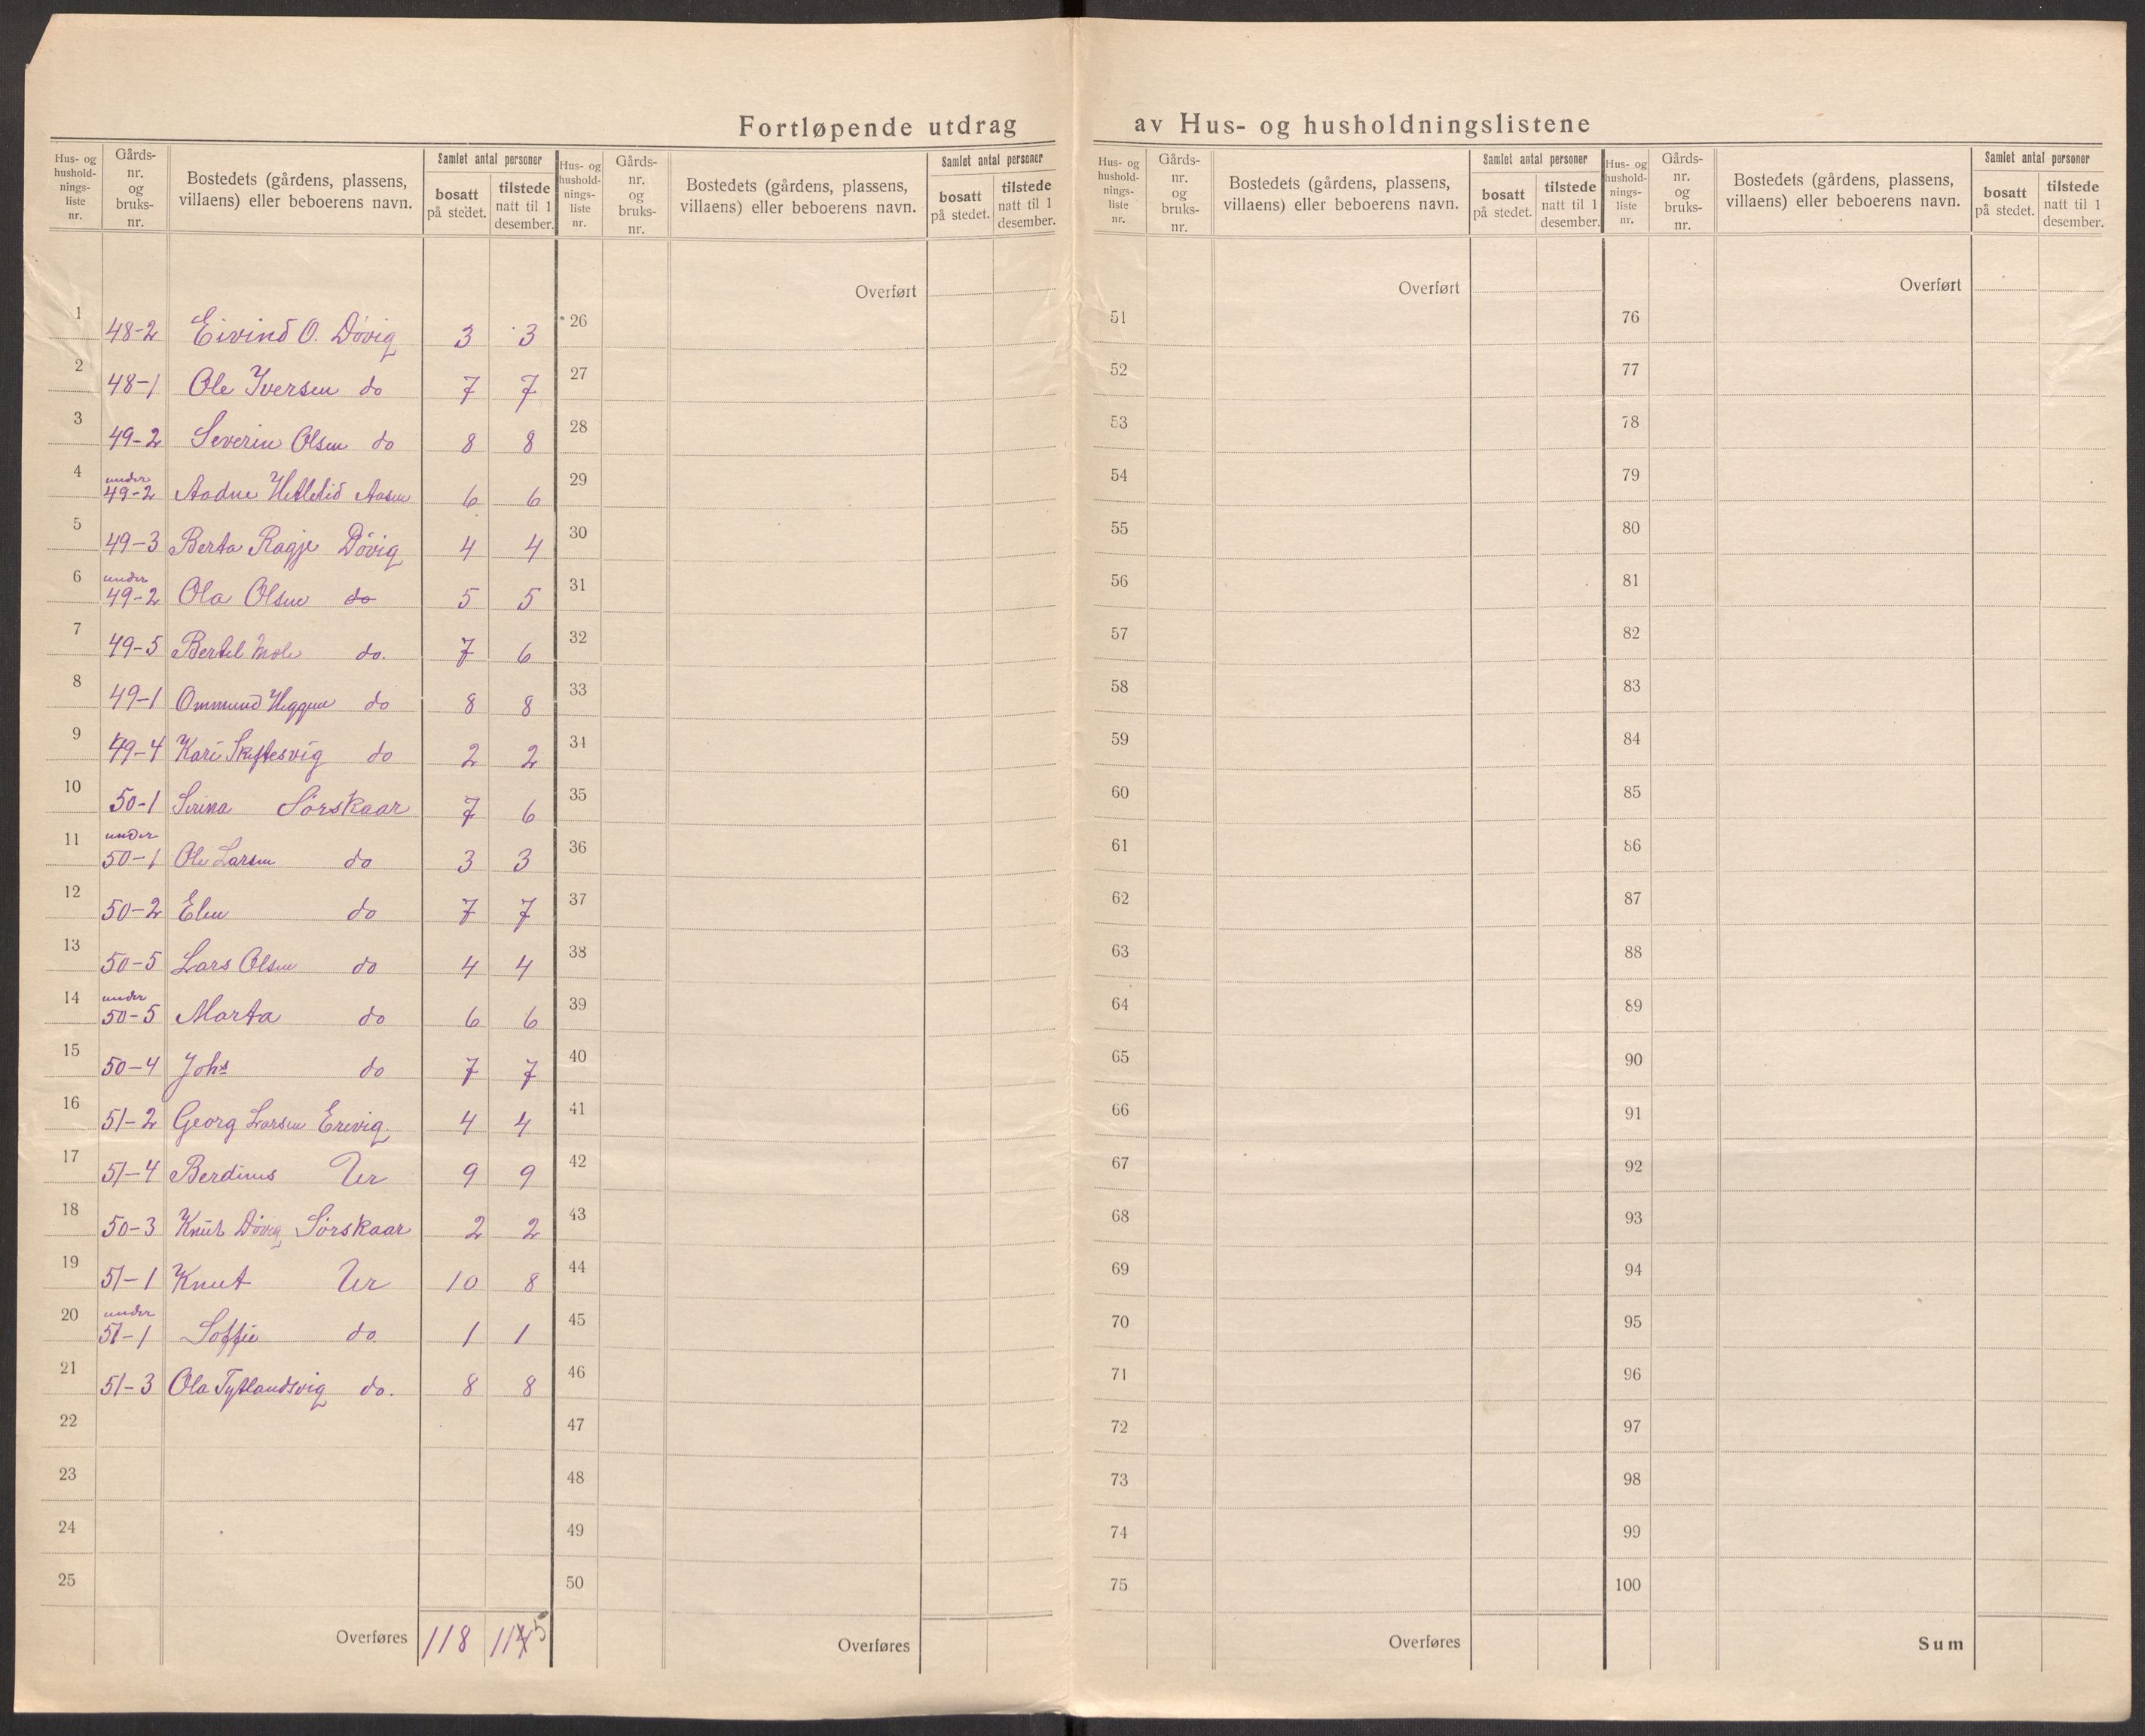 Fortløpende utdrag av Hus- og husholdningslistene
Hus- og husholdnings-liste nr. | Gårds-nr. og bruks-nr. | Bostedets (gårdens, plassens, villaens) eller beboerens navn. | Samlet antal personer bosatt på stedet. | tilstede natt til 1 desember.
1 | 48-2 | Eivind O. Døvig | 3 | 3
2 | 48-1 | Ole Iversen do | 7 | 7
3 | 49-2 | Severin Olsen do | 8 | 8
4 | under 49-2 | Aadne Hetletid Aasen | 6 | 6
5 | 49-3 | Berta Ragje Døvig | 4 | 4
6 | under 49-2 | Ola Olsen do | 5 | 5
7 | 49-5 | Bertel Mole do. | 7 | 6
8 | 49-1 | Ommund Heggen do | 8 | 8
9 | 49-4 | Kari Skiftesvig do | 2 | 2
10 | 50-1 | Serina Sørskaar | 7 | 6
11 | under 50-1 | Ole Larsen do | 3 | 3
12 | 50-2 | Elen do | 7 | 7
13 | 50-5 | Lars Olsen do | 4 | 4
14 | under 50-5 | Marta do | 6 | 6
15 | 50-4 | Johs do | 7 | 7
16 | 51-2 | Georg Larsen Erevig | 4 | 4
17 | 51-4 | Berdinus Ur | 9 | 9
18 | 50-3 | Knut Døvig Sørskaar | 2 | 2
19 | 51-1 | Knut Ur | 10 | 8
20 | under 51-1 | Soffie do | 1 | 1
21 | 51-3 | Ola Tytlandsvig do. | 8 | 8
22
23
24
25
Overføres | 118 | 1145
Hus- og husholdnings-liste nr. | Gårds-nr. og bruks-nr. | Bostedets (gårdens, plassens, villaens) eller beboerens navn. | Samlet antal personer bosatt på stedet. | tilstede natt til 1 desember.
Overført
26
27
28
29
30
31
32
33
34
35
36
37
38
39
40
41
42
43
44
45
46
47
48
49
50
Overføres
Hus- og husholdnings-liste nr. | Gårds-nr. og bruks-nr. | Bostedets (gårdens, plassens, villaens) eller beboerens navn. | Samlet antal personer bosatt på stedet. | tilstede natt til 1 desember.
Overført
51
52
53
54
55
56
57
58
59
60
61
62
63
64
65
66
67
68
69
70
71
72
73
74
75
Overføres
Hus- og husholdnings-liste nr. | Gårds-nr. og bruks-nr. | Bostedets (gårdens, plassens, villaens) eller beboerens navn. | Samlet antal personer bosatt på stedet. | tilstede natt til 1 desember.
Overført
76
77
78
79
80
81
82
83
84
85
86
87
88
89
90
91
92
93
94
95
96
97
98
99
100
Sum